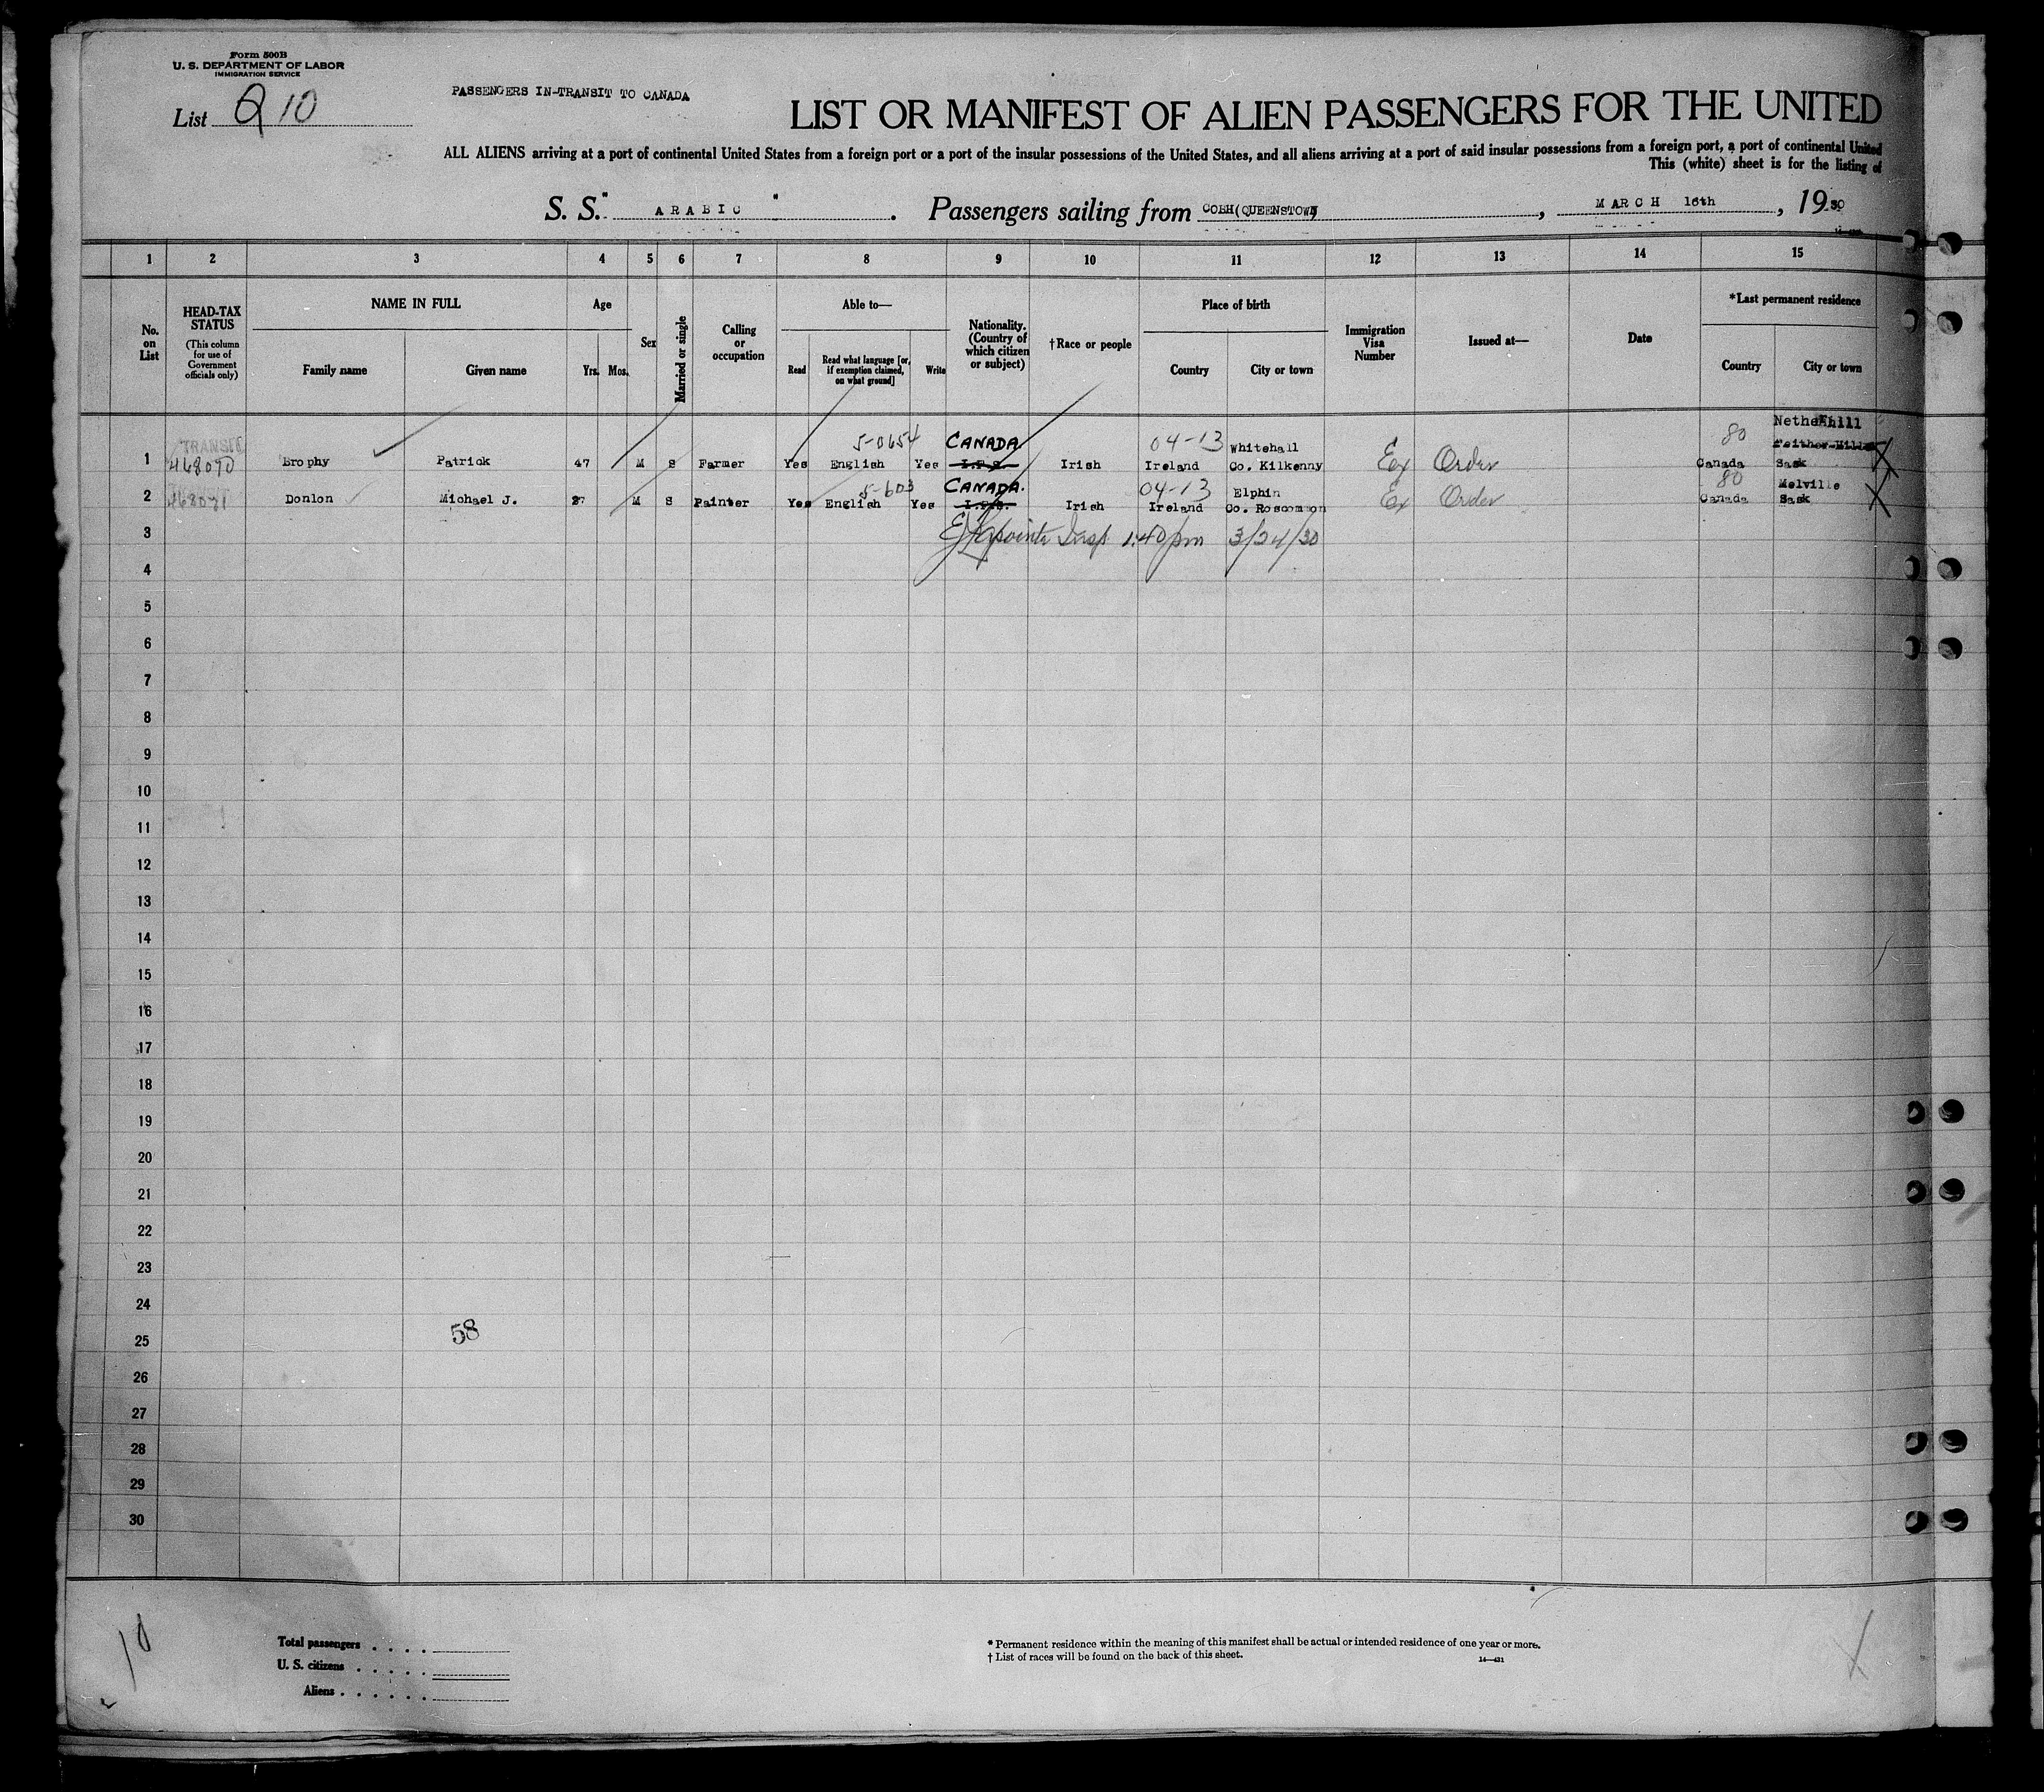 Form 500B
U. S. DEPARTMENT OF LABOR
IMMIGRATION SERVICE
List Q 10
PASSENGERS IN-TRANSIT TO CANADA
LIST OR MANIFEST OF ALIEN PASSENGERS FOR THE UNITED
ALL ALIENS arriving at a port of continental United States from a foreign port or a port of the insular possessions of the United States, and all aliens arriving at a port of said insular possessions from a foreign port, a port of continental United
This (white) sheet is for the listing of
S. S. " ARABIC " . Passengers sailing from COBH(QUEENSTOWN) , MARCH 16th , 19 30
1 2 3 4 5 6 7 8 9 10 11 12 13 14 15
No. on List
HEAD-TAX STATUS
(This column for use of Government officials only)
NAME IN FULL
Family name Given name
Age
Yrs. Mos.
Sex
Married or single
Calling or occupation
Able to—
Read Read what language [or, if exemption claimed, on what ground] Write
Nationality. (Country of which citizen or subject)
†Race or people
Place of birth
Country City or town
Immigration Visa Number
Issued at—
Date
*Last permanent residence
Country City or town
TRANSIT 5-0654 CANADA 04-13 Whitehall 80 Netherhill
1 468070 Brophy Patrick 47 M S Farmer Yes English Yes Irish Ireland Co. Kilkenny Ex Order Canada Sask
5-603 CANADA. 04-13 Elphin 80 Melville
2 Donlon Michael J. 37 M S Painter Yes English Yes Irish Ireland Co. Roscommon Ex Order Canada Sask
3 Insp 1:40 pm 3/24/30
4
5
6
7
8
9
10
11
12
13
14
15
16
17
18
19
20
21
22
23
24
25 58
26
27
28
29
30
10
Total passengers . . . .
U. S. citizens . . . . .
Aliens . . . . . .
* Permanent residence within the meaning of this manifest shall be actual or intended residence of one year or more.
† List of races will be found on the back of this sheet.
14—431